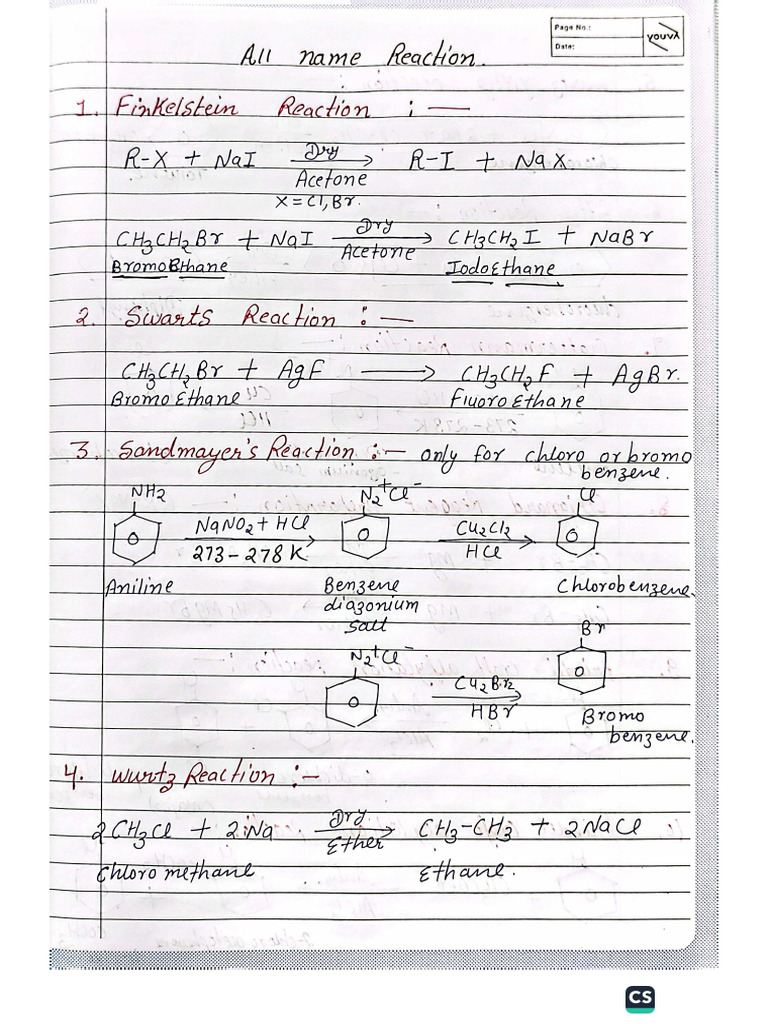 Page No.:
Date:
youva
All name Reaction.
1. Finkelstein Reaction : —
R-X + NaI Dry Acetone → R-I + NaX
X = Cl, Br.
CH3CH2Br + NaI Dry Acetone → CH3CH2I + NaBr
BromoEthane IodoEthane
2. Swarts Reaction : —
CH3CH2Br + AgF → CH3CH2F + AgBr.
BromoEthane FluoroEthane
3. Sandmayer's Reaction : — only for chloro or bromo
benzene.
NH2 N2+Cl- Cl
NaNO2 + HCl 273 – 278 K → Cu2Cl2 HCl →
Aniline Benzene diazonium salt Chlorobenzene.
N2+Cl- Br
Cu2Br2 HBr →
Bromo
benzene.
4. Wurtz Reaction : —
2CH3Cl + 2Na Dry Ether → CH3-CH3 + 2NaCl
Chloro methane Ethane.
CS